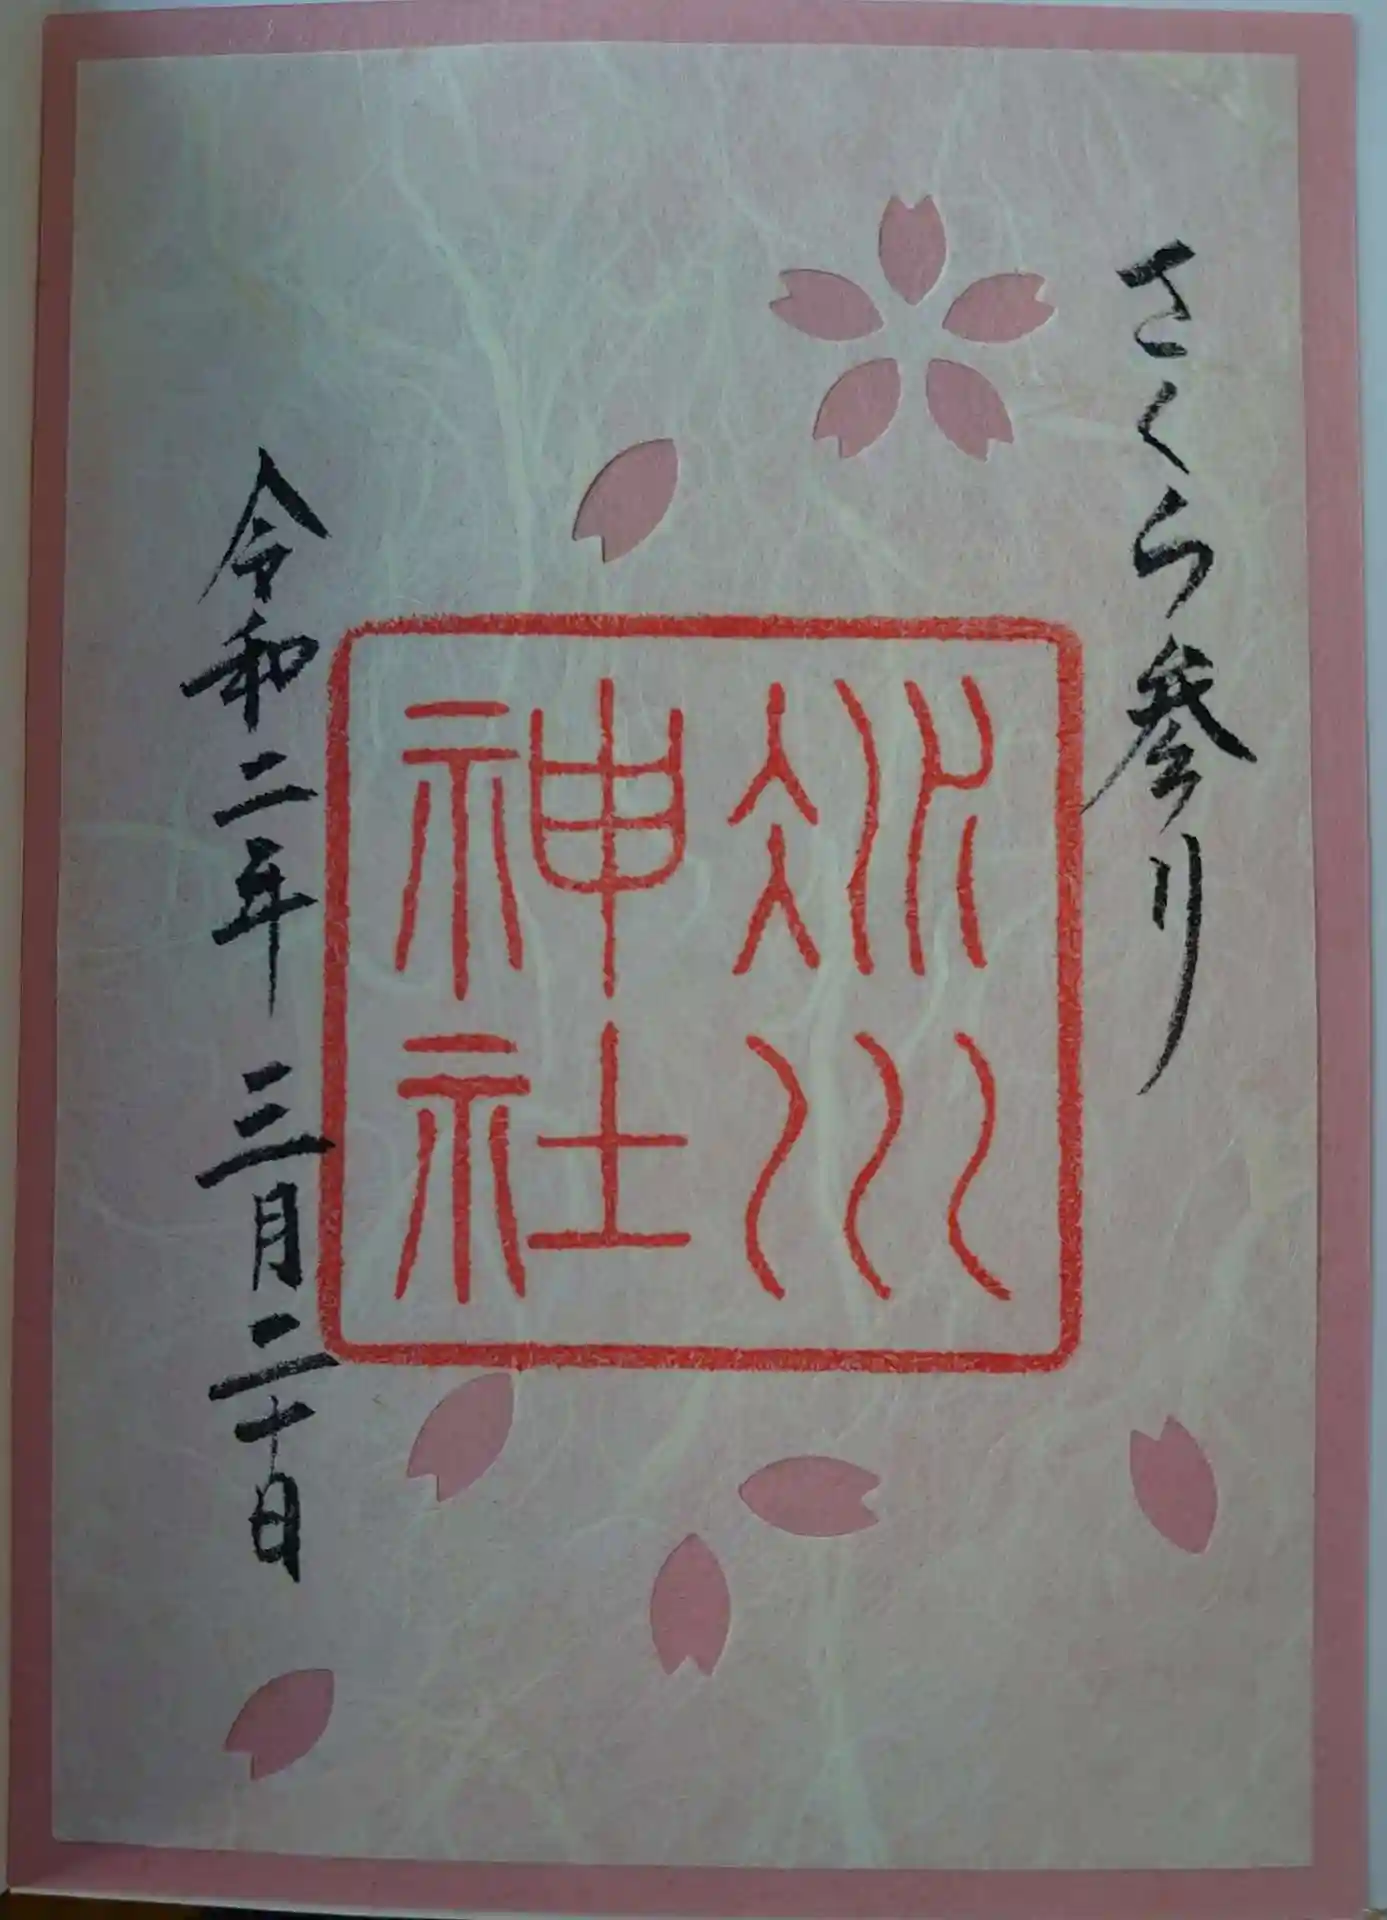 さくら参り
冰川
神社
令和二年 三月二十日